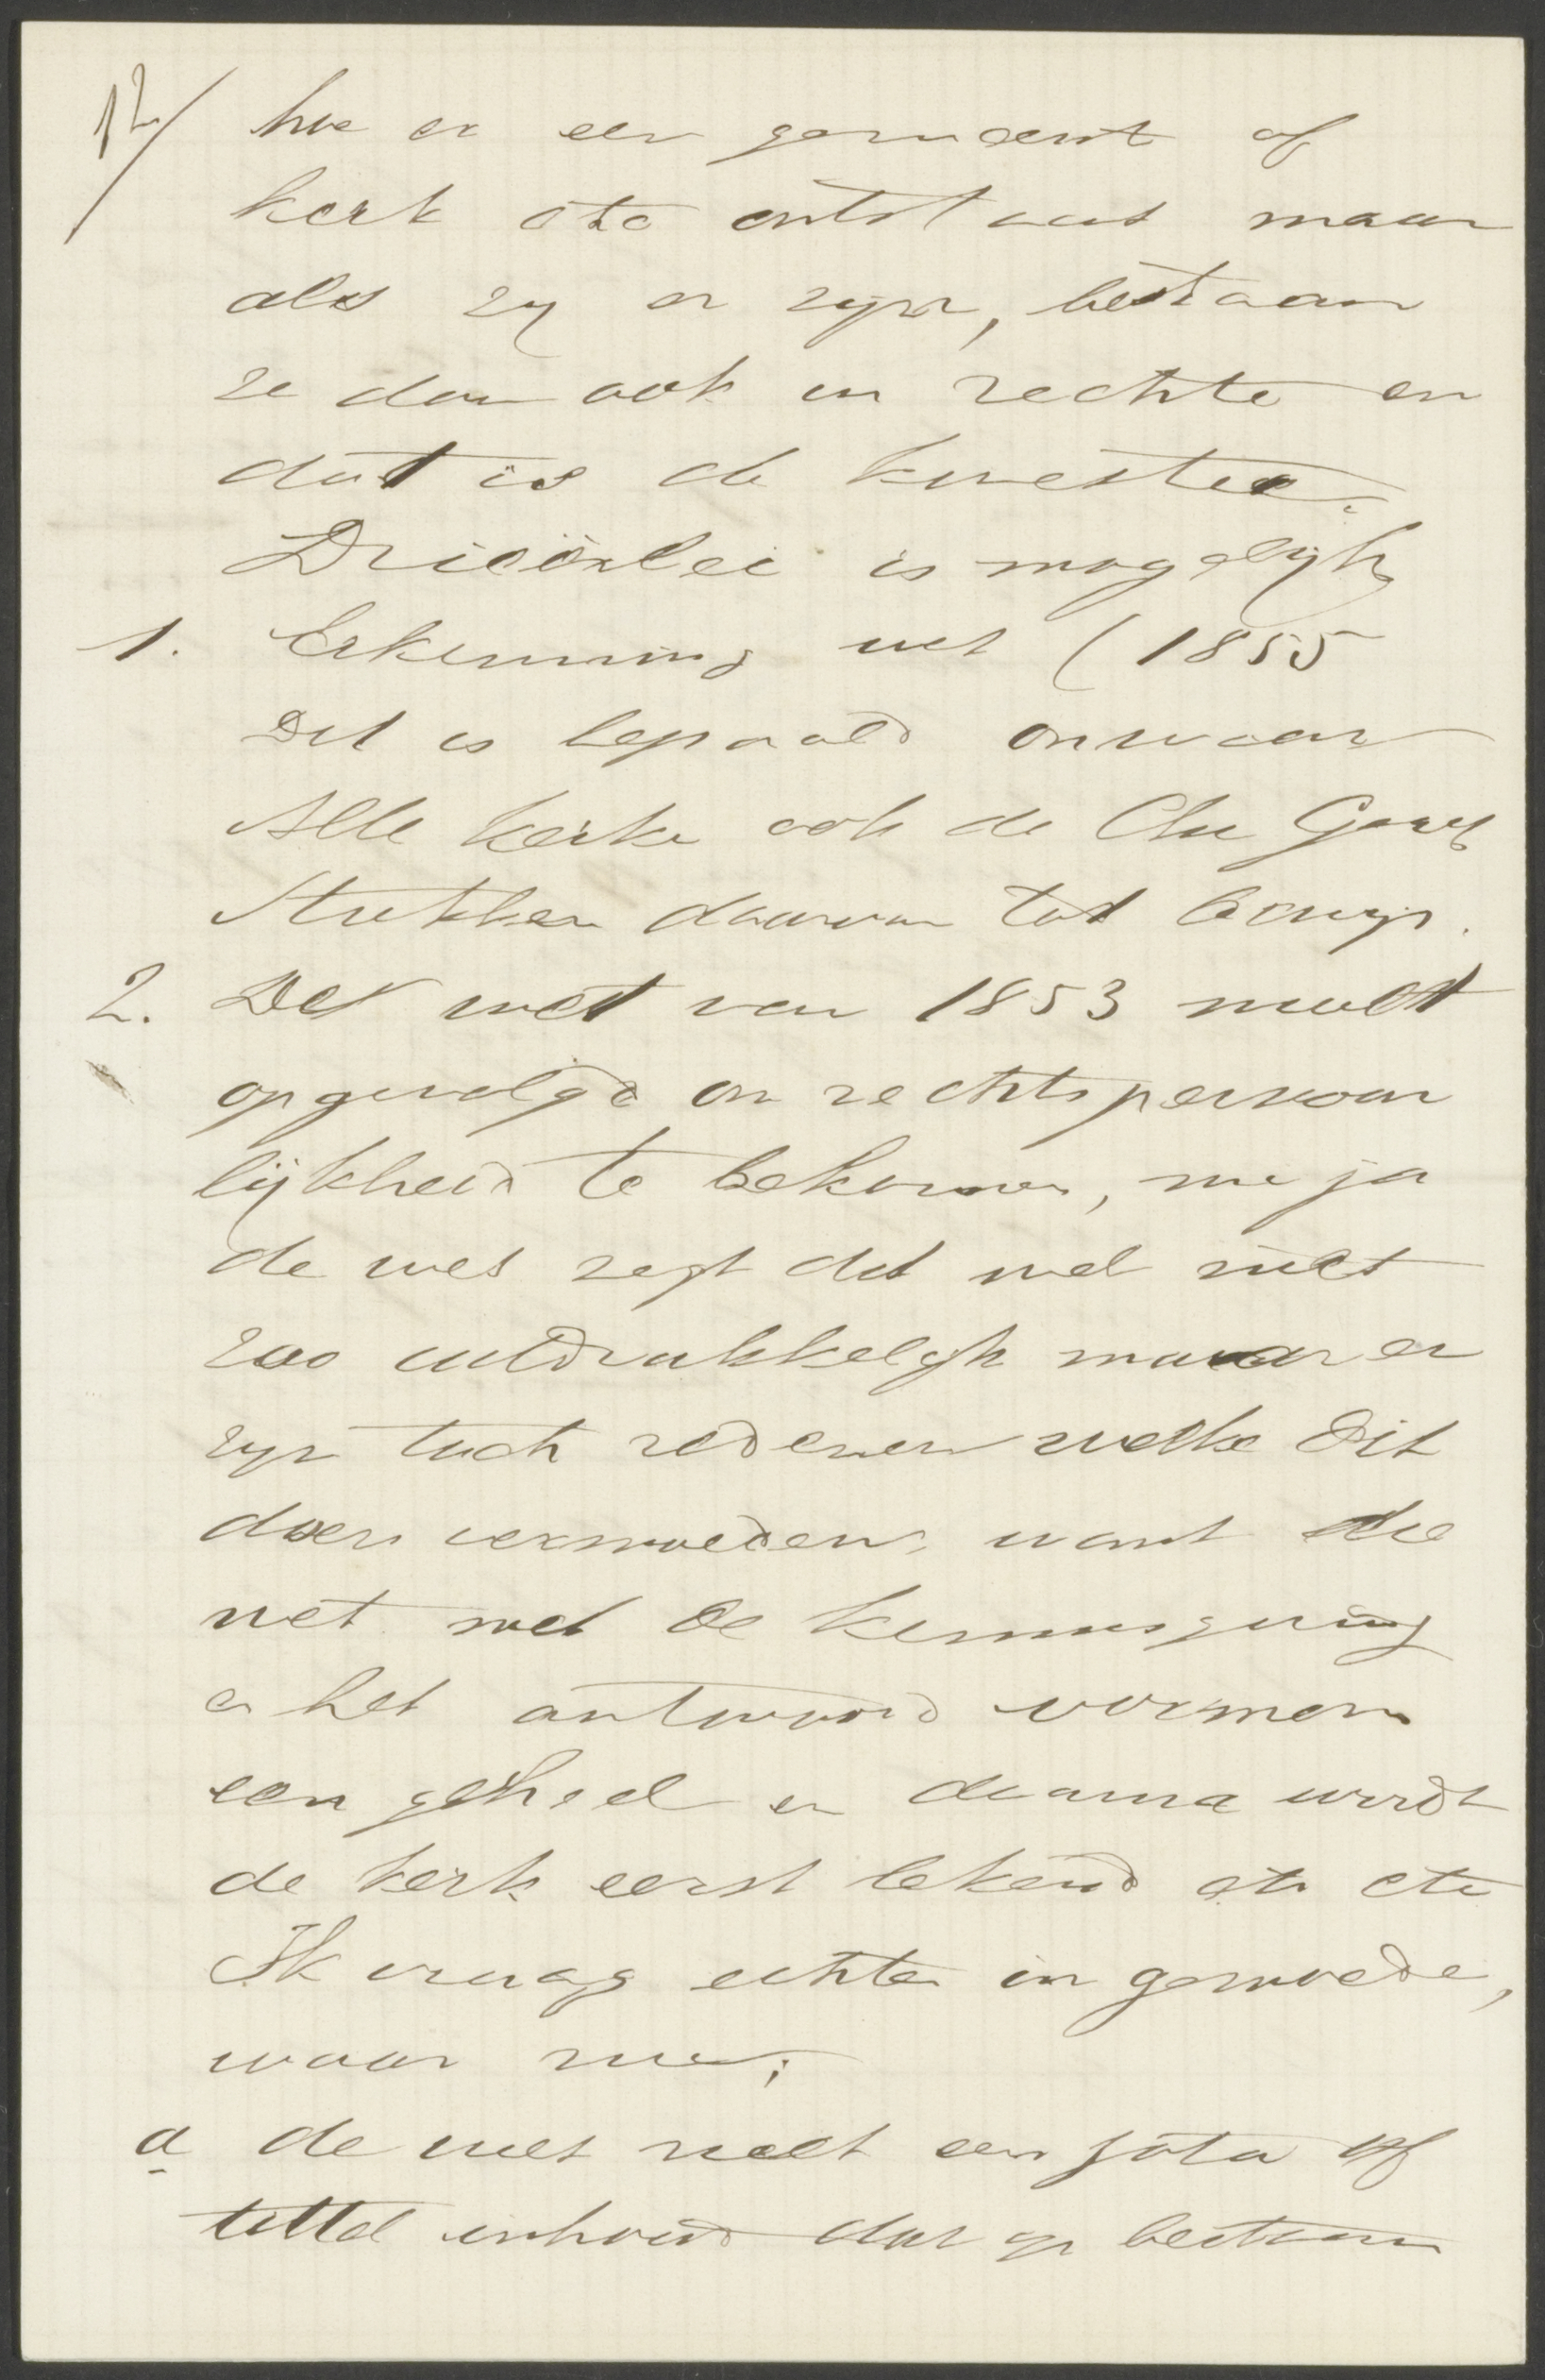 12/ hoe er een gemeent of
kerk etc ontstaat maar
als zij er zijn, bestaan
ze dan ook in rechte en
dat is de kwestie.
Drieërlei is mogelijk
1. Erkenning wet (1855
Dit is bepaald onwaar
Alle kerke ook de Chr Geref
Strekken daarvan tot bewijs.
2. De wet van 1853 moet
opgevolgd om rechtspersoon
lijkheid te bekomen, nu ja
de wet zegt dat wel niet
zoo uitdrukkelijk maar er
zijn toch redenen welke dit
doen vermoeden, want die
wet met de kennisgeving
en het antwoord vormen
een geheel en daarna wordt
de kerk eerst bekend etc etc
Ik vraag echter in gemoede,
waar nu;
a de wet niet een jota of
tittel inhoud dat op bestaan